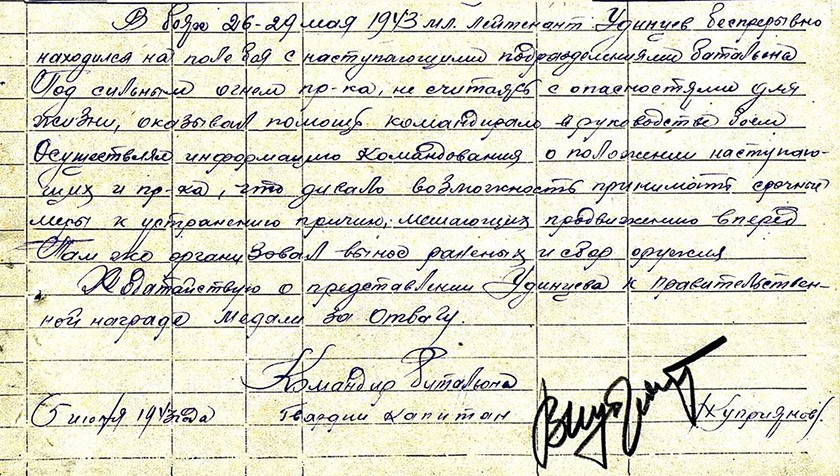 В боях 26-29 мая 1943 мл. лейтенант Удинцев беспрерывно
находился на поле боя с наступающими подразделениями батальона
Под сильным огнем пр-ка, не считаясь с опасностями для
жизни, оказывал помощь командирам в руководстве боем
Осуществлял информацию командования о положении наступаю-
щих и пр-ка, что давало возможность принимать срочные
меры к устранению причин, мешающих продвижению вперед
Там же организовал вынос раненых и сбор оружия
Ходатайствую о представлении Удинцева к правительствен-
ной награде медали за Отвагу.
Командир батальона
5 июня 1943 года Гвардии капитан /Куприянов/.